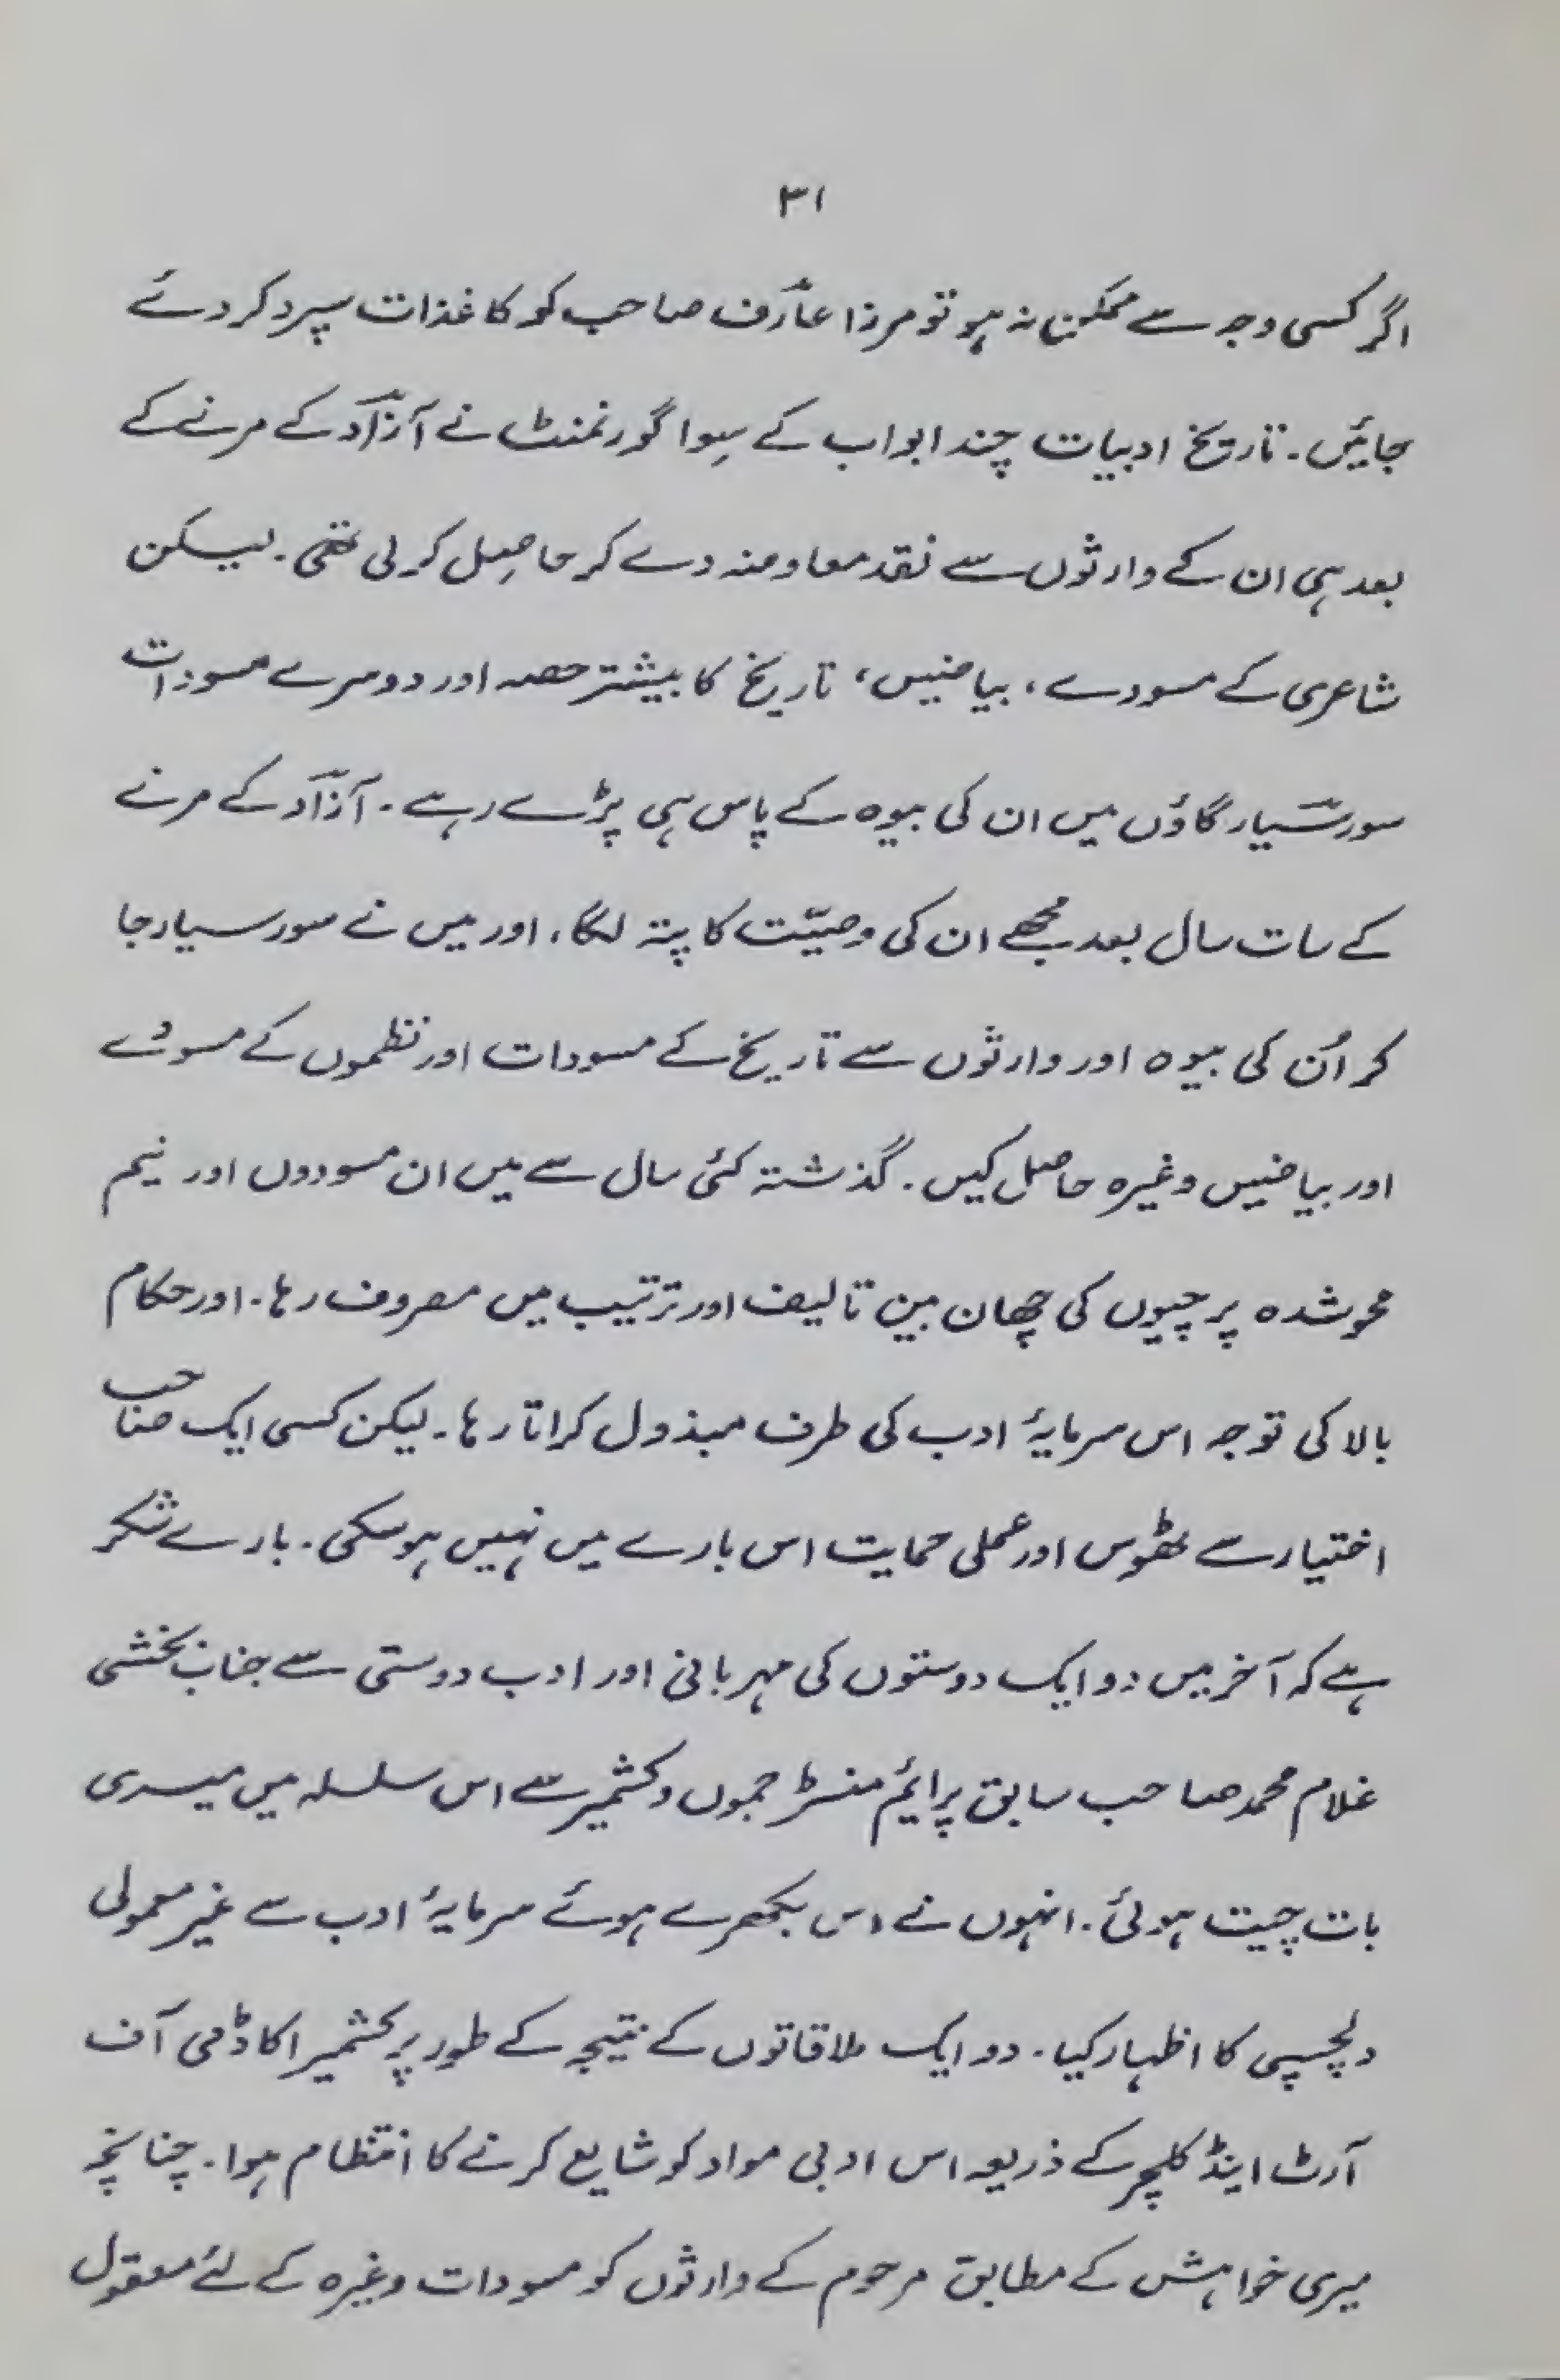 ۳۱
اگر کسی وجہ سے ممکن نہ ہو تو مرزا عارؔف صاحب کو کاغذات سپرد کر دئے
جائیں۔ تاریخ ادبیات چند ابواب کے سِوا گورنمنٹ نے آزاؔد کے مرنے کے
بعد ہی ان کے وارثوں سے نقد معاوضہ دے کر حاصِل کر لی تھی۔ لیسکن
شاعری کے مسودے، بیاضیں، تاریخ کا بیشتر حصہ اور دوسرے مسودات
سورسیار گاؤں میں ان کی بیوہ کے پاس ہی پڑے رہے۔ آزاؔد کے مرنے
کے سات سال بعد مجھے ان کی وصیّت کا پتہ لگا، اور میں نے سورسیار جا
کر اُن کی بیوہ اور وارثوں سے تاریخ کے مسودات اور نظموں کے مسودے
اور بیاضیں وغیرہ حاصل کیں۔ گذشتہ کئی سال سے میں ان مسودوں اور نیم
محو شدہ پرچیوں کی چھان بین تالیف اور ترتیب میں مصروف رہا۔ اور حکام
بالا کی توجہ اس سرمایۂ ادب کی طرف مبذول کراتا رہا۔ لیکن کسی ایک صاحب
اختیار سے ٹھوس اور عملی حمایت اس بارے میں نہیں ہو سکی۔ بارے شکر
ہے کہ آخر میں دو ایک دوستوں کی مہربانی اور ادب دوستی سے جناب بخشی
غلام محمد صاحب سابق پرایم منسٹر جموں و کشمیر سے اس سلسلہ میں میری
بات چیت ہوئی۔ انہوں نے اس بکھرے ہوئے سرمایۂ ادب سے غیر معمولی
دلچسپی کا اظہار کیا۔ دو ایک ملاقاتوں کے نتیجہ کے طور پر کشمیر اکاڈمی آف
آرٹ اینڈ کلچر کے ذریعہ اس ادبی مواد کو شایع کرنے کا انتظام ہوا۔ چنانچہ
میری خواہش کے مطابق مرحوم کے وارثوں کو مسودات وغیرہ کے لئے معقول